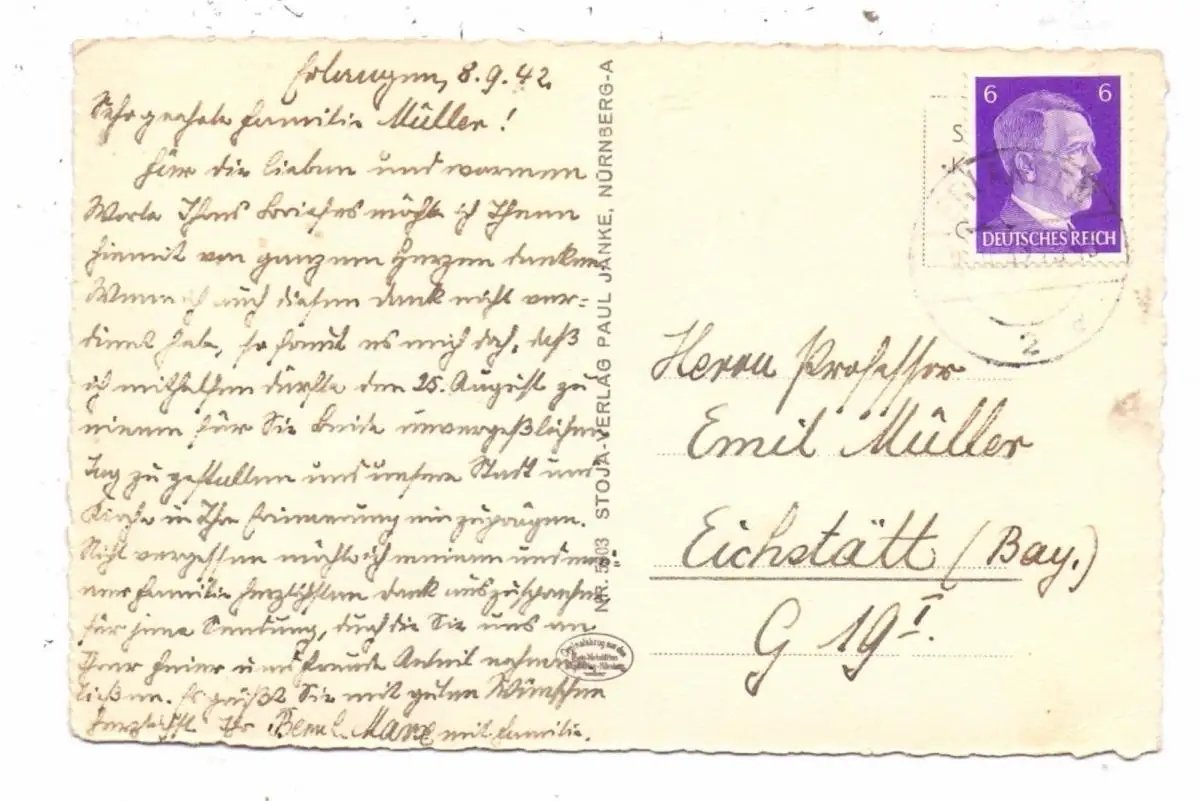 Erlangen, 8.9.42.
Sehr geehrte Familie Müller!
Für die lieben und warmen
Worte Ihres Briefes möchte ich Ihnen
hiemit von ganzem Herzen danken.
Wenn ich auch diesen Dank nicht ver-
dient habe, so freut es mich doch, daß
ich mithelfen durfte den 25. August zu
einem für Sie beide unvergeßlichen
Tag zu gestalten und unsere Stadt und
Kirche in Ihre Erinnerung einzuprägen.
Nicht vergessen möchte ich meinen und mei-
ner Familie herzlichsten Dank auszusprechen
für jene Sendung, durch die Sie uns an
Ihrer Feier und Freude Anteil nehmen
ließen. Es grüßt Sie mit guten Wünschen
herzlichst Ihr Marx mit Familie.
NR. 5903 STOJA-VERLAG PAUL JANKE, NÜRNBERG-A
6 6
DEUTSCHES REICH
2
Herrn Professor
Emil Müller
Eichstätt (Bay.)
G 19 I.